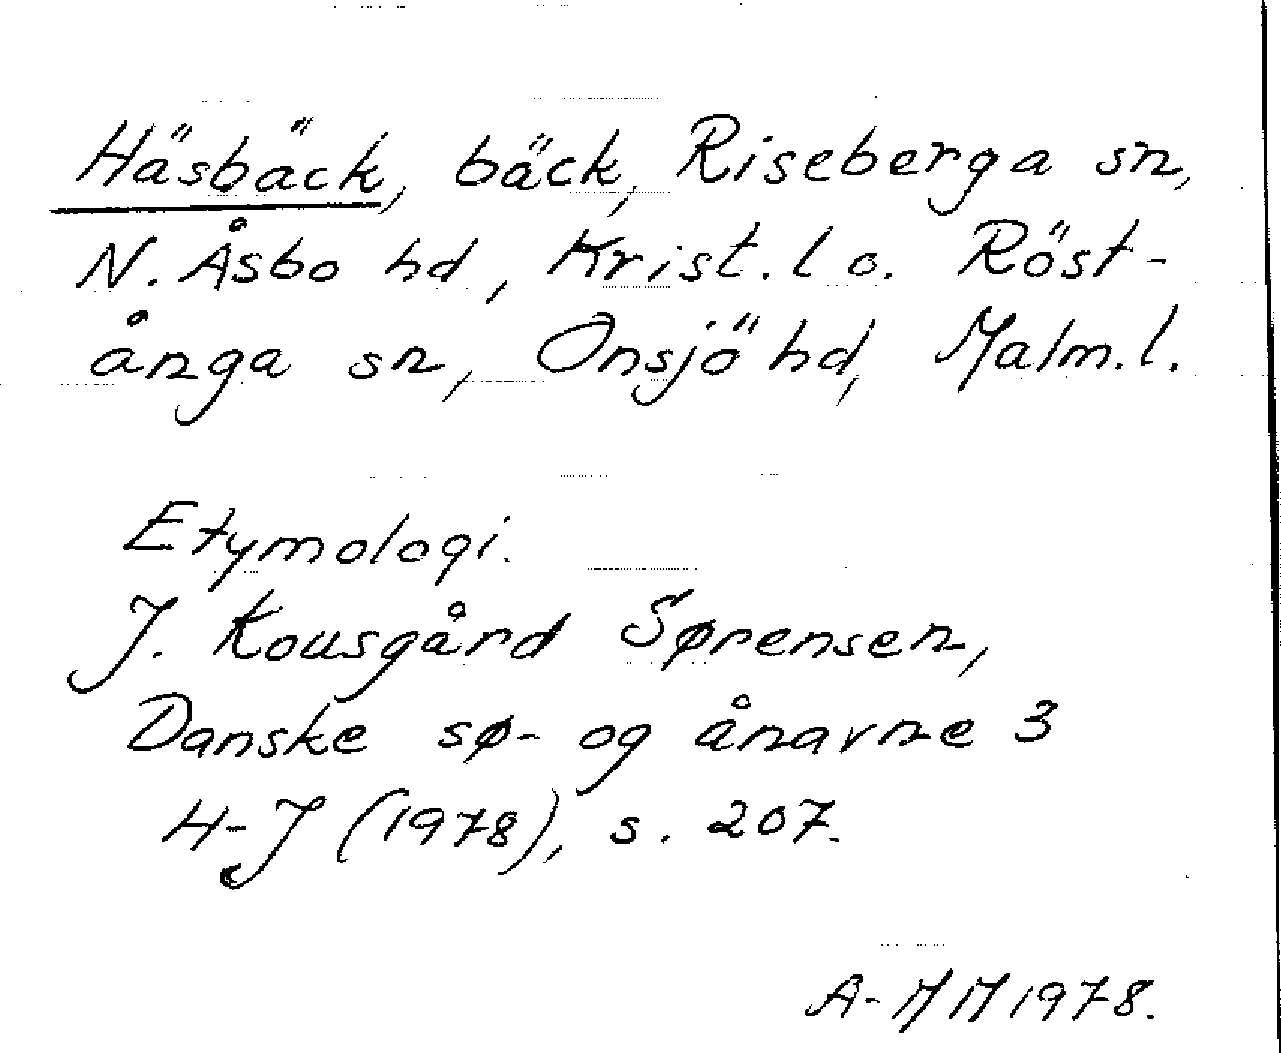 Häsbäck, bäck, Riseberga sn,
N. Åsbo hd, Krist. l o. Röst-
ånga sn, Onsjö hd, Malm. l.
Etymologi.
J. Kousgård Sørensen,
Danske sø- og ånavne 3
H-J (1978), s. 207.
A-MM 1978.